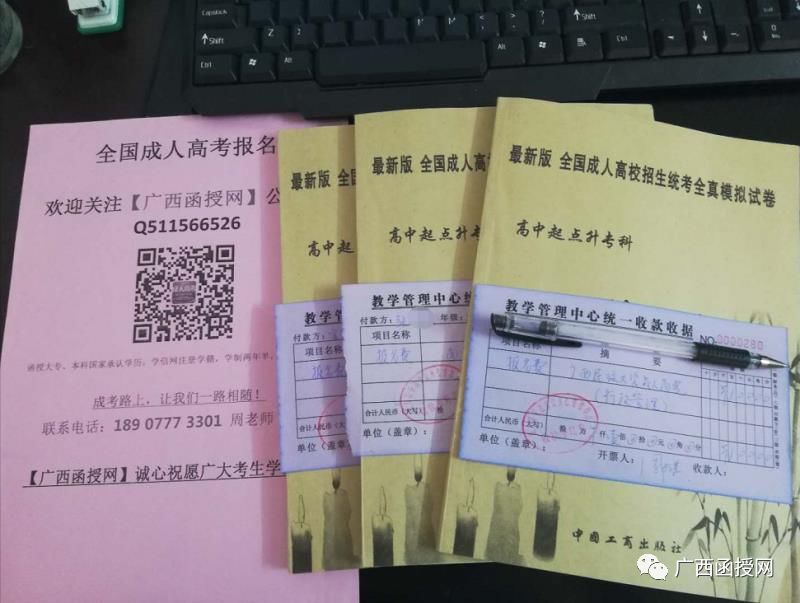 全国成人高考报名
欢迎关注【广西函授网】公
Q511566526
成人高考
函授大专、本科国家承认学历,学信网注册学籍,学制两年半,
成考路上,让我们一路相随!
联系电话:189 0777 3301 周老师
【广西函授网】诚心祝愿广大考生学
最新版 全国
高中起点升
教学管理
付款方:
项目名称
报名费
合计人民币(大写)
单位(盖章):
最新版 全国成人高
高中起点升专
教学管理中心统
付款方:
年级:
项目名称
报名费
合计人民币(大写) 拾
单位(盖章):
最新版 全国成人高校招生统考全真模拟试卷
高中起点升专科
教学管理中心统一收款收据
NO.0000280
项目名称
摘 要
报名费
广西民族大学成人高考
(行政管理)
合计人民币(大写) 拾 万 仟 佰 拾 元 角 分
单位(盖章):
开票人:
收款人:
中国工商出版社
广西函授网
Capslock
Shift
Ctrl
Alt
Alt
Shift
Ctrl